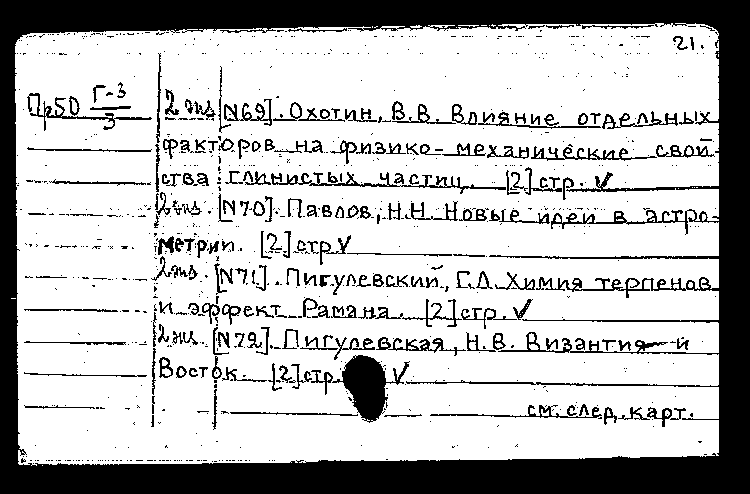 21.
Пр50 Г-3/3 2 экз [N69]. Охотин, В.В. Влияние отдельных
факторов на физико-механические свой-
ства глинистых частиц. [2] стр. ✓
2 экз. [N70]. Павлов, Н.Н. Новые идеи в астро-
метрии. [2] стр ✓
2 экз. [N71]. Пигулевский, Г.Л. Химия терпенов
и эффект Рамана. [2] стр. ✓
2 экз. [N72]. Пигулевская, Н.В. Византия и
Восток. [2] стр. ✓
см. след. карт.